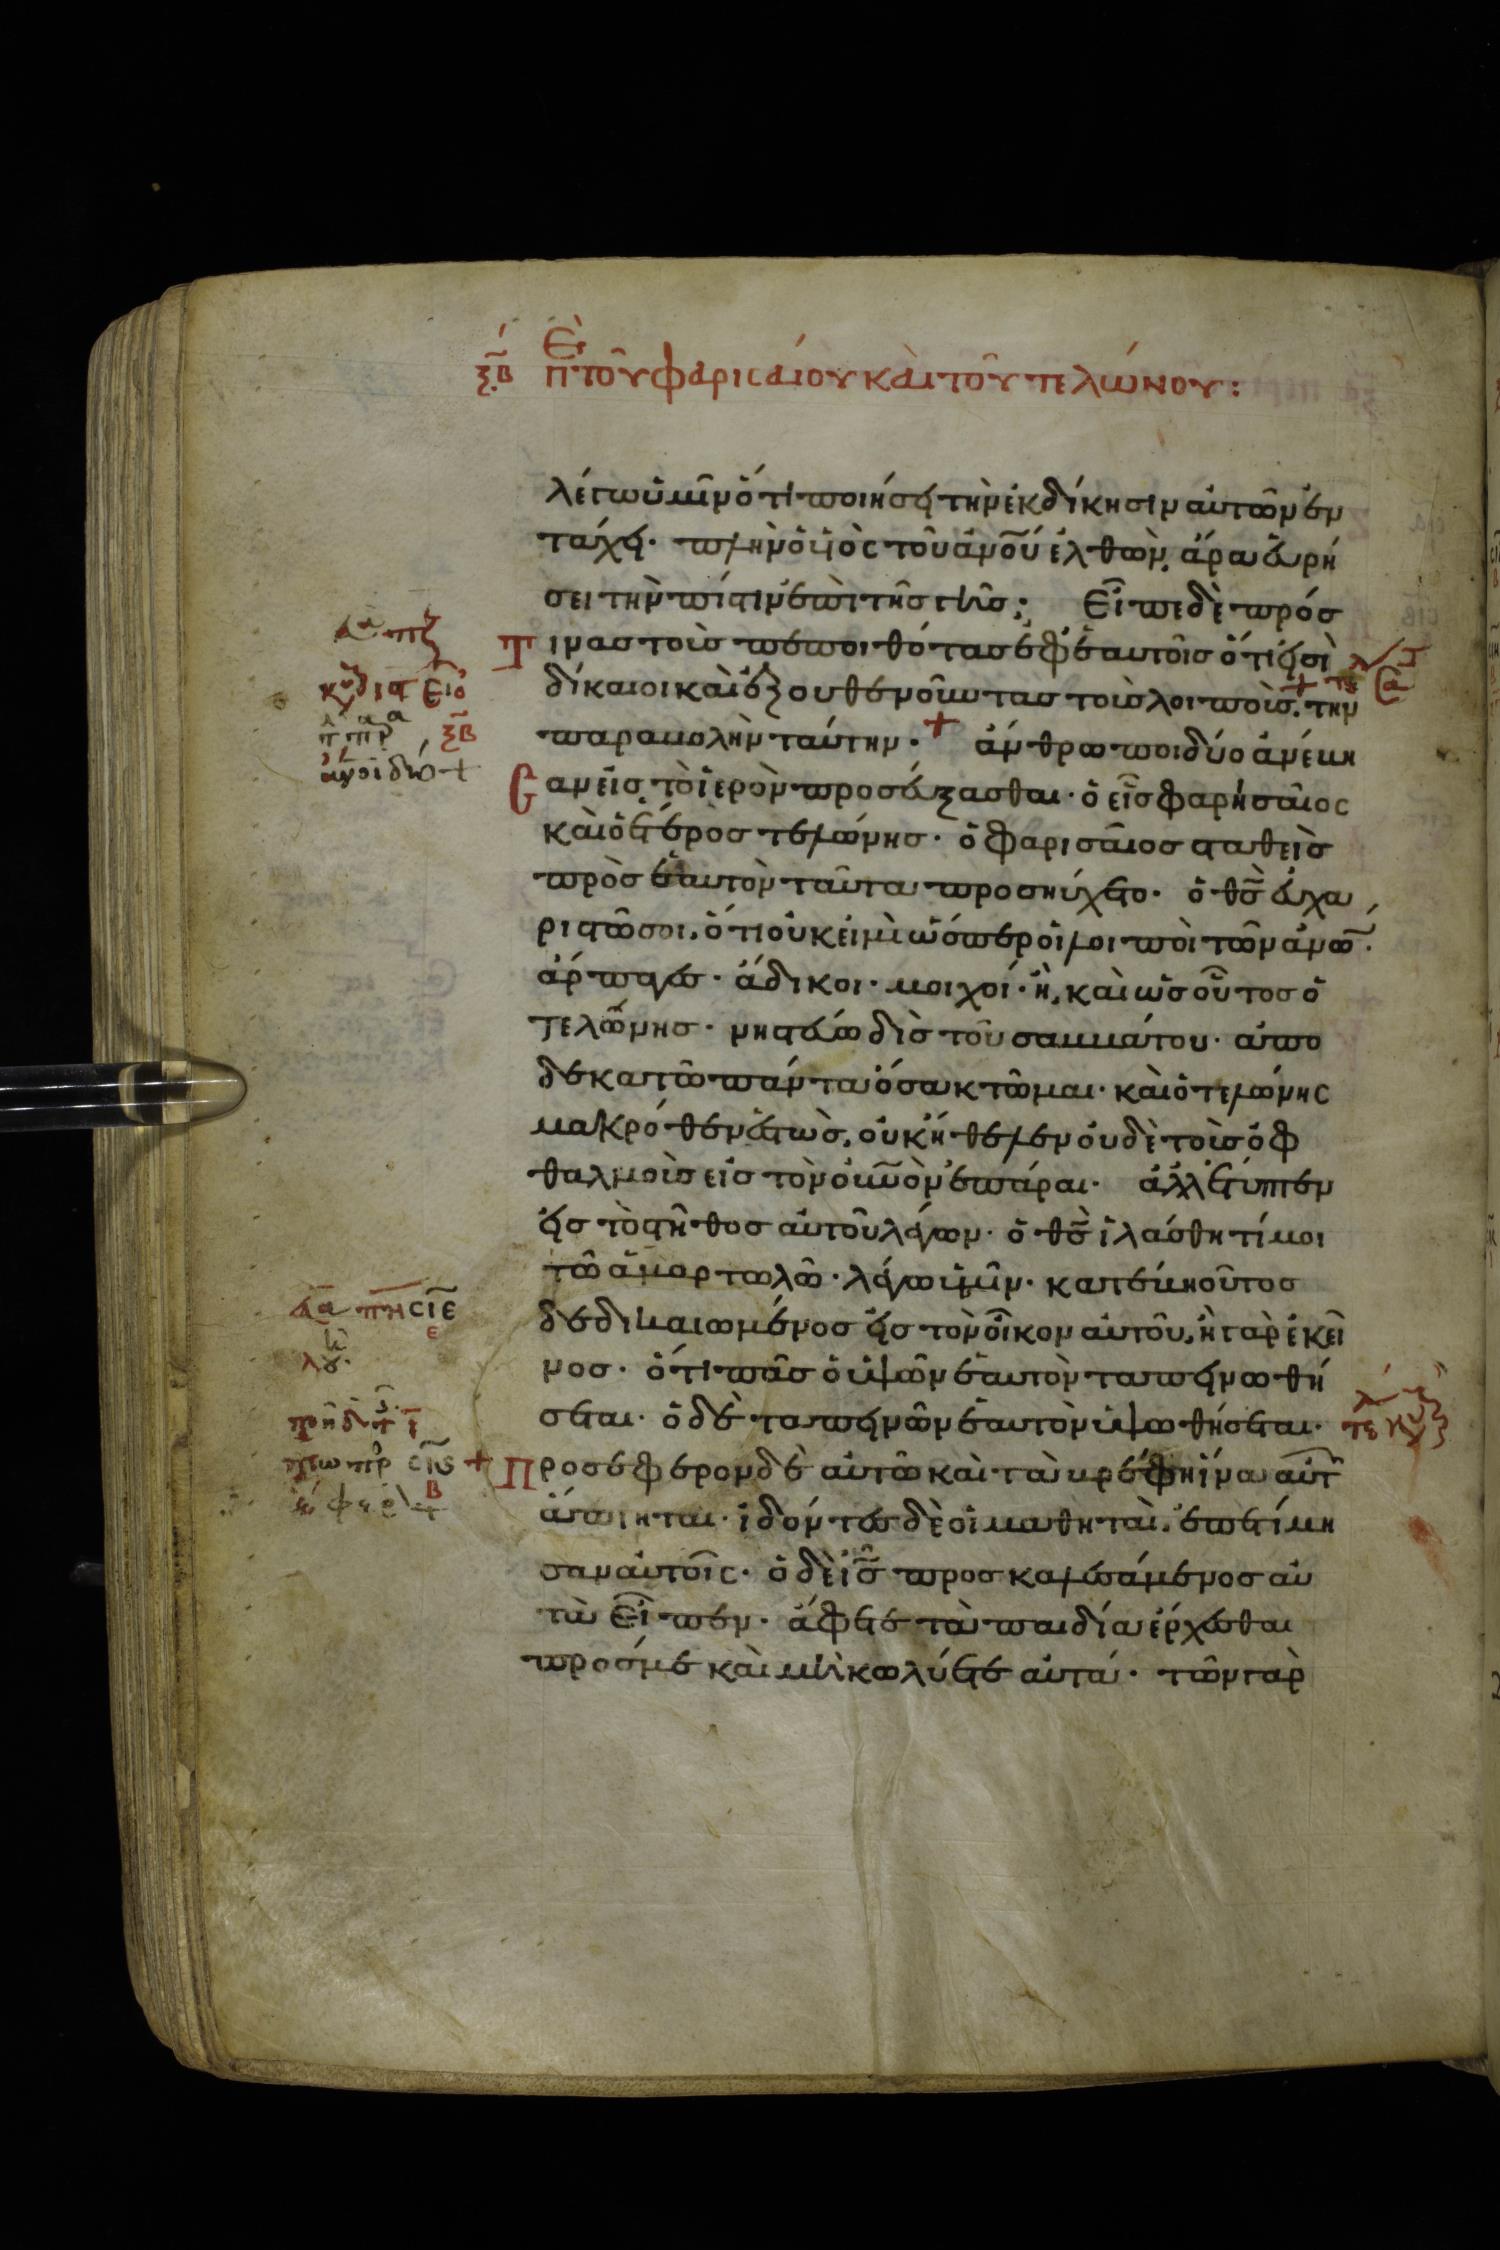 ξβ Ἐπὶ τοῦ φαρισαίου καὶ τοῦ τελώνου:
λέγω ὑμῖν ὅτι ποιήσει τὴν ἐκδίκησιν αὐτῶν ἐν
τάχει· πλὴν ὁ υἱὸς τοῦ ἀνοῦ ἐλθὼν, ἄρα εὑρή
σει τὴν πίστιν ἐπὶ τῆς γῆς; Εἶπε δὲ πρόσ
τινας τοὺς πεποιθότας ἐφ' ἑαυτοῖς ὅτι εἰσὶ
δίκαιοι καὶ ἐξουθενοῦντας τοὺς λοιποὺς. τὴν
παραβολὴν ταύτην· + ἄνθρωποι δύο ἀνέβη
σαν εἰς τὸ ἱερὸν προσεύξασθαι· ὁ εἷς φαρησαῖος
καὶ ὁ ἕτερος τελώνης· ὁ φαρισαῖος σταθεὶς
πρὸς ἑαυτὸν ταῦτα προσηύχετο· ὁ θς εὐχα
ριστῶ σοι, ὅτι οὐκ εἰμὶ ὥσπερ οἱ λοιποὶ τῶν ἀνων·
ἅρπαγες· ἄδικοι· μοιχοί· ἢ, καὶ ὡς οὗτος ὁ
τελώνης· νηστεύω δὶς τοῦ σαββάτου· ἀπο
δεκατῶ πάντα ὅσα κτῶμαι· καὶ ὁ τελώνης
μακρόθεν ἑστὼς, οὐκ ἤθελεν οὐδὲ τοὺς ὀφ
θαλμοὺς εἰς τὸν οὐνὸν ἐπάραι· ἀλλ' ἔτυπτεν
εἰς τὸ στῆθος αὐτοῦ λέγων· ὁ θς ἱλάσθητί μοι
τῶ ἁμαρτωλῶ· λέγω ὑμῖν· κατέβη οὗτος
δεδικαιωμένος εἰς τὸν οἶκον αὐτοῦ, ἢ γὰρ ἐκεῖ
νος· ὅτι πᾶς ὁ ὑψῶν ἑαυτὸν ταπεινωθή
σεται· ὁ δὲ ταπεινῶν ἑαυτὸν ὑψωθήσεται·
+ Προσέφερον δὲ αὐτῶ καὶ τὰ βρέφη ἵνα αὐτ
ἅπτηται· ἰδόντες δὲ οἱ μαθηταὶ, ἐπετίμη
σαν αὐτοῖς· ὁ δὲ ις προσκαλεσάμενος αὐ
τὰ εἶπεν· ἄφετε τὰ παιδία ἔρχεσθαι
πρός με καὶ μὴ κωλύετε αὐτά· τῶν γὰρ